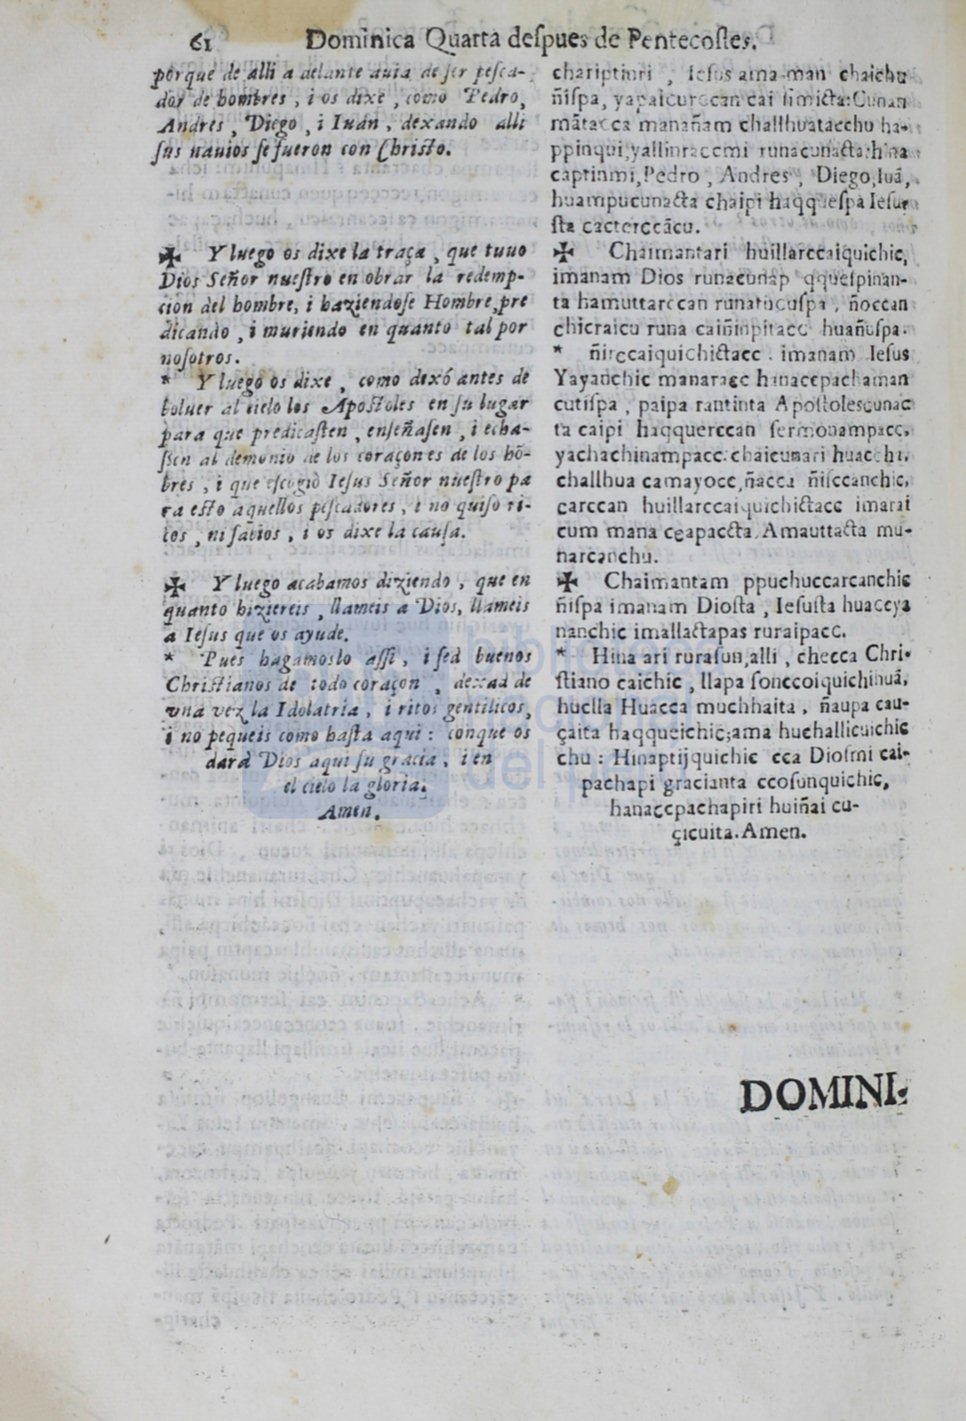 61 Dominica Quarta deſpues de Pentecoſtes.
porque de alli a delante auia de ſer peſca-
dor de hombres, i os dixe, como Pedro,
Andres, Diego, i Iuán, dexando alli
ſus nauios ſe fueron con Chriſto.
✠ Y luego os dixe la traça, que tuuo
Dios Señor nueſtro en obrar la redemp-
cion del hombre, i haziendoſe Hombre, pre
dicando, i muriendo en quanto tal por
noſotros.
* Y luego os dixe, como dexó antes de
boluer al cielo los Apoſtoles en ſu lugar
para que predicaſſen, enſeñaſen, i echa-
ſſen al demonio de los coraçones de los hõ-
bres, i que eſcogiò Ieſus Señor nueſtro pa
ra eſto aquellos peſcadores, i no quiſo ri-
cos, ni ſabios, i os dixe la cauſa.
✠ Y luego acabamos diziendo, que en
quanto hiziereis, llameis a Dios, llameis
a Ieſus que os ayude.
* Pues hagamoslo aſſi, i ſed buenos
Chriſtianos de todo coraçon, dexad de
vna vez la Idolatria, i ritos gentilicos,
i no pequeis como haſta aqui: conque os
dará Dios aqui ſu gracia, i en
el cielo la gloria.
Amen.
chariptinri, Ieſus ama man chaichu
ñiſpa, yapaicurccan cai ſimicta: Cunan
mãtacca manañam challhuatacchu ha-
ppinqui, yallinraccmi runacunacta: hina
captinmi, Pedro, Andres, Diego, Iuã,
huampucunacta chaipi haqqueſpa Ieſus
ſta catcterccãcu.
✠ Chaimantari huillarccaiquichic,
imanam Dios runacunap qqueſpinan-
ta hamuttarccan runatucuſpa, ñoccan
chicraicu runa caiñinpitacc huañuſpa.
* ñirccaiquichictacc. imanam Ieſus
Yayanchic manaracc hanaccpachaman
cutiſpa, paipa rantinta Apoſtolescunac
ta caipi haqquerccan ſermonampacc,
yachachinampacc: chaicunari huacchi,
challhua camayocc, ñacca ñiſccanchic,
carccan huillarccaiquichictacc imarai
cum mana ccapaccta, Amauttacta mu-
narcanchu.
✠ Chaimantam ppuchuccarcanchic
ñiſpa imanam Dioſta, Ieſuſta huaccya
nanchic imallactapas ruraipacc.
* Hina ari ruraſun, alli, checca Chri-
ſtiano caichic, llapa ſonccoiquichihuã,
huclla Huacca muchhaita, ñaupa cau-
çaita haqqueichic; ama huchallicuichic
chu: Hinaptijquichic cca Dioſmi cai-
pachapi gracianta ccoſunquichic,
hanaccpachapiri huiñai cu-
çicuita. Amen.
DOMINI-